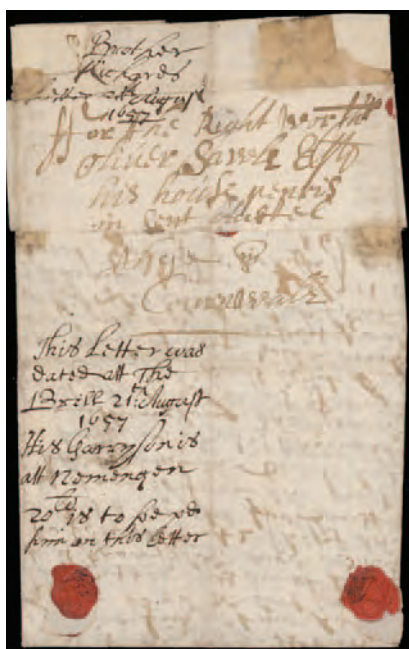 Brother
Richards
Letter 21th August
1657
For The Right Worth
Oliver Sawle Esq
his house penris
in Cent Austel
These
Cornwall
This Letter was
dated att The
Brill 21th August
1657
His Garryson is
att Nemengen
20ty is to be pd
him on this Letter